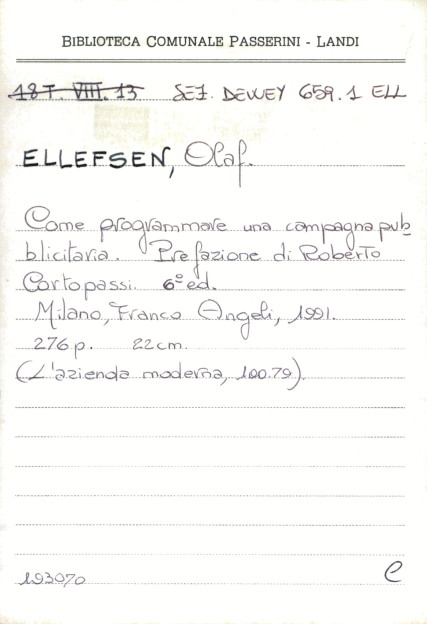 BIBLIOTECA COMUNALE PASSERINI - LANDI
18 T. VIII. 13 SEZ. DEWEY 659.1 ELL
ELLEFSEN, Olaf.
Come programmare una campagna pub
blicitaria. Prefazione di Roberto
Cortopassi. 6° ed.
Milano, Franco Angeli, 1991.
276 p. 22 cm.
(L'azienda moderna, 100.79).
193070 C